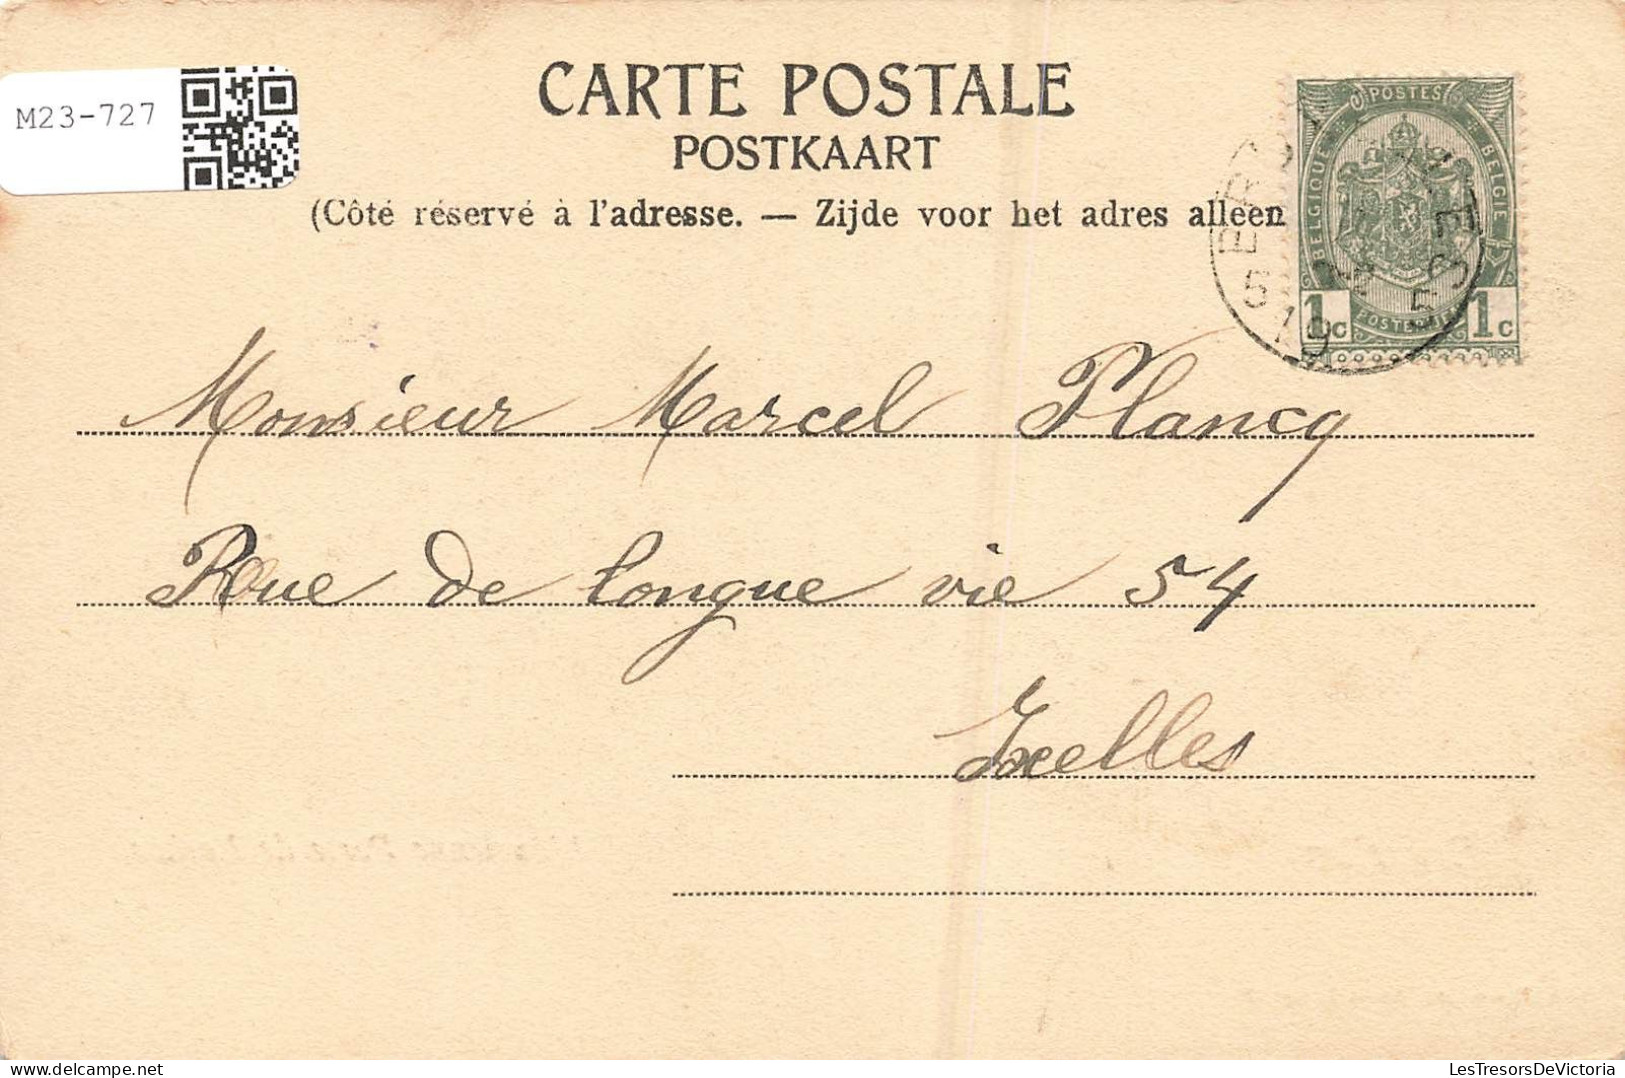 M23-727
CARTE POSTALE
POSTKAART
(Côté réservé à l'adresse. — Zijde voor het adres alleen
POSTES
BELGIQUE
BELGIE
1c
1c
Monsieur Marcel Plancq
Rue de longue vie 54
Ixelles
LesTresorsDeVictoria